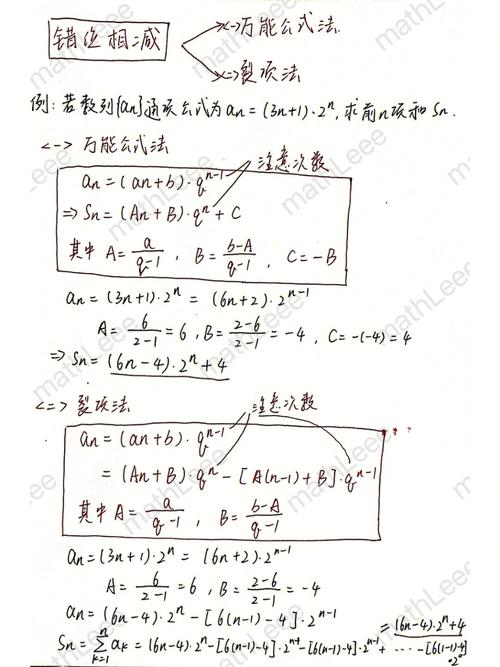 错位相减
<一>万能公式法
<二>裂项法
例:若数列{an}通项公式为an=(3n+1)·2^n,求前n项和Sn.
<一> 万能公式法
注意次数
an=(an+b)·q^(n-1)
⇒ Sn=(An+B)·q^n+C
其中 A=a/(q-1), B=(b-A)/(q-1), C=-B
an=(3n+1)·2^n=(6n+2)·2^(n-1)
A=6/(2-1)=6, B=(2-6)/(2-1)=-4, C=-(-4)=4
⇒ Sn=(6n-4)·2^n+4
<二> 裂项法
注意次数
an=(an+b)·q^(n-1)
=(An+B)·q^n-[A(n-1)+B]·q^(n-1)
其中A=a/(q-1), B=(b-A)/(q-1)
an=(3n+1)·2^n=(6n+2)·2^(n-1)
A=6/(2-1)=6, B=(2-6)/(2-1)=-4
an=(6n-4)·2^n-[6(n-1)-4]·2^(n-1)
=(6n-4)·2^n+4
Sn=∑(k=1→n) ak=(6n-4)·2^n-[6(n-1)-4]·2^(n-1)-[6(n-1)-4]·2^(n-1)+⋯-[6(1-1)-4]·2^0
mathLeee